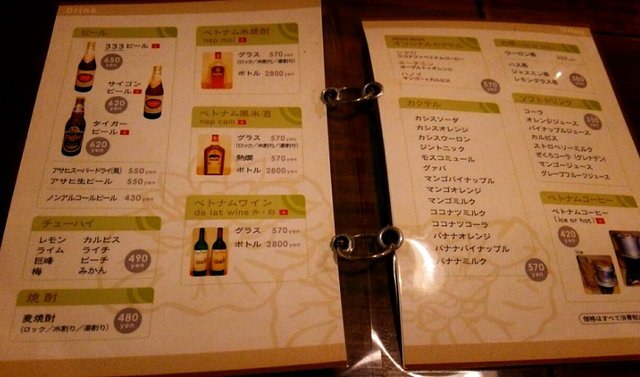 Drink
ビール
333ビール
650 yen
サイゴン
ビール
620 yen
タイガー
ビール
620 yen
アサヒスーパードライ(瓶) 550 yen
アサヒ生ビール 550 yen
ノンアルコールビール 430 yen
チューハイ
レモン カルピス
ライム ライチ
巨峰 ピーチ
梅 みかん
490 yen
焼酎
麦焼酎
(ロック/水割り/湯割り)
480 yen
ベトナム米焼酎
nep moi
グラス 570 yen
(ロック/水割り/湯割り)
ボトル 2800 yen
ベトナム黒米酒
nep cam
グラス 570 yen
(ロック/水割り/湯割り)
熱燗 570 yen
ボトル 2800 yen
ベトナムワイン
da lat wine 赤・白
グラス 570 yen
ボトル 2800 yen
オリジナルカクテル
ココナツ+ベトナムコーヒー
ホーチミン
ヨーグルト+オレンジ
ハノイ
マンゴー+カルピス
570
カクテル
カシスソーダ
カシスオレンジ
カシスウーロン
ジントニック
モスコミュール
グァバ
マンゴパイナップル
マンゴオレンジ
マンゴミルク
ココナツミルク
ココナツコーラ
バナナオレンジ
バナナパイナップル
バナナミルク
570 yen
お茶
ウーロン茶
ハス茶
ジャスミン茶
レモングラス茶
ソフトドリンク
コーラ
オレンジジュース
パイナップルジュース
カルピス
ストロベリーミルク
ざくろコーラ(グレナデン)
マンゴージュース
グレープフルーツジュース
ベトナムコーヒー
(ice or hot)
420 yen
ice
価格はすべて消費税